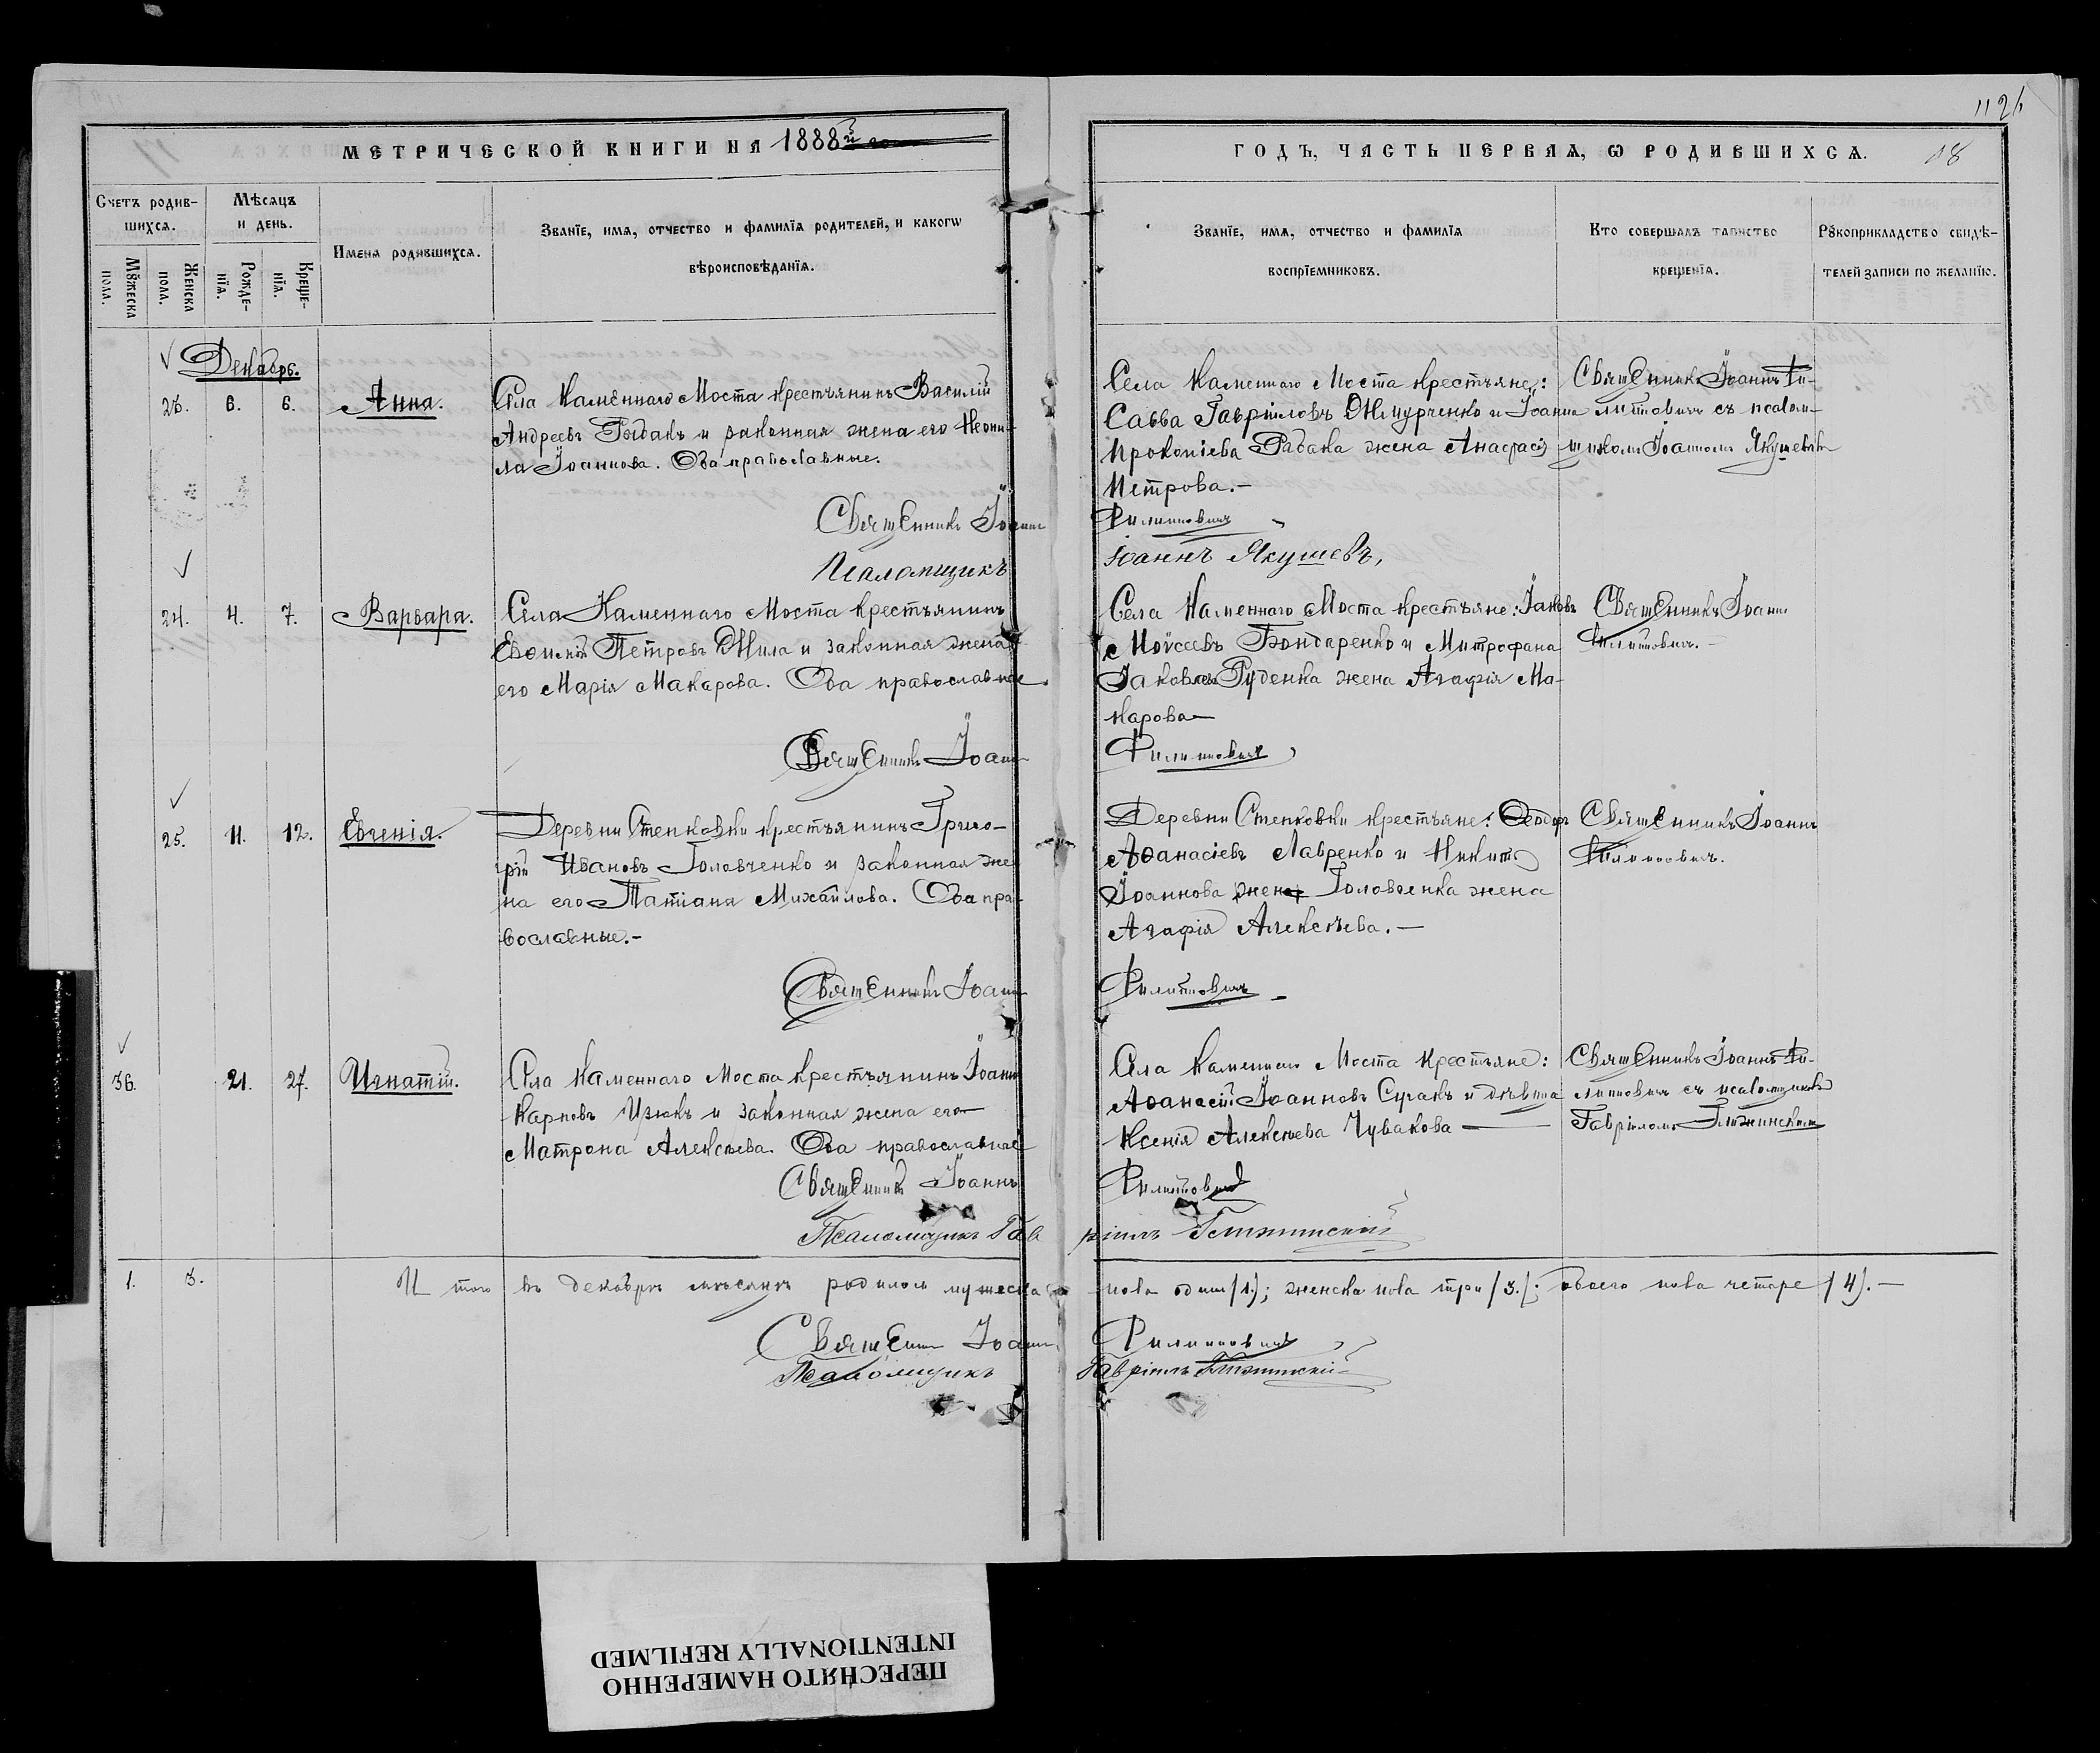 1126
МЕТРИЧЕСКОЙ КНИГИ НА 1888й
ГОДЪ, ЧАСТЬ ПЕРВАЯ, Ѡ РОДИВШИХСѦ. 18
Счетъ родив-
шихсѧ.
Мѣсѧцъ
и день.
Имена родившихсѧ.
Званїе, имѧ, отчество и фамилїѧ родителей, и какогѡ
вѣроисповѣданїѧ.
Мꙋжеска
пола.
Женска
пола.
Рожде-
нїѧ.
Креще-
нїѧ.
Званїе, имѧ, отчество и фамилїѧ
воспрїемниковъ.
Кто совершалъ таинство
крещенїѧ.
Рꙋкоприкладство свидѣ-
телей записи по желанїю.
Декабрь.
23. 6. 6. Анна.
Села Каменнаго Моста крестьянинъ Василій
Андреевъ и законная жена его Неони-
ла Іоаннова. Оба православные.
Священникъ Іоаннъ
Псаломщикъ
Села Каменнаго Моста крестьяне:
Савва Гавріиловъ и Іоанна
Прокопіева жена Анастасія
Петрова.-
Филипповичъ
Іоаннъ Якушевъ,
Священникъ Іоаннъ Фи-
липповичъ съ псалом-
щикомъ Іоанномъ Якушевымъ
24. 4. 7. Варвара.
Села Каменнаго Моста крестьянинъ
Петровъ и законная жена
его Марія Макарова. Оба православные.
Священникъ Іоаннъ
Села Каменнаго Моста крестьяне: Іаковъ
Моѵсеевъ Бондаренко и Митрофана
Іаковлева Руденка жена Агафія Ма-
карова
Филипповичъ
Священникъ Іоаннъ
Филипповичъ.-
25. 11. 12. Евгенія.
Деревни Степковки крестьянинъ Григо-
рій Ивановъ Головченко и законная же-
на его Татіана Михайлова. Оба пра-
вославные.-
Священникъ Іоаннъ
Деревни Степковки крестьяне: Ѳеодоръ
Аѳанасіевъ Лавренко и Никиты
Іоаннова жена жена
Агафія Алексѣева.—
Филипповичъ
Священникъ Іоаннъ
Филипповичъ.
36. 21. 27. Игнатій.
Села Каменнаго Моста крестьянинъ Іоаннъ
Карповъ и законная жена его
Матрона Алексѣева. Оба православные
Священникъ Іоаннъ
Псаломщикъ Гав
Села Каменнаго Моста крестьяне:
Аѳанасій Іоанновъ и дѣвица
Ксенія Алексѣева Чувакова
Филипповичъ
ріилъ
Священникъ Іоаннъ Фи-
липповичъ съ псаломщикомъ
Гавріиломъ
1. 3. Итого въ декабрѣ мѣсяцѣ родилось мужеска пола одинъ (1.); женска пола три (3.); обоего пола четыре (4).—
Священникъ Іоаннъ Филипповичъ
Псаломщикъ Гавріилъ
ПЕРЕСНЯТО НАМЕРЕННО
INTENTIONALLY REFILMED